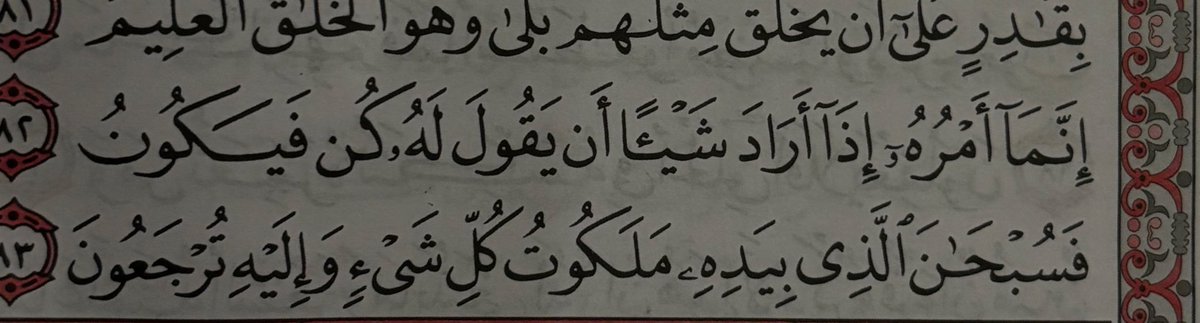 بِقَٰدِرٍ عَلَىٰٓ أَن يَخْلُقَ مِثْلَهُم بَلَىٰ وَهُوَ ٱلْخَلَّٰقُ ٱلْعَلِيمُ ٨١
إِنَّمَآ أَمْرُهُۥٓ إِذَآ أَرَادَ شَيْـًٔا أَن يَقُولَ لَهُۥ كُن فَيَكُونُ ٨٢
فَسُبْحَٰنَ ٱلَّذِى بِيَدِهِۦ مَلَكُوتُ كُلِّ شَىْءٍ وَإِلَيْهِ تُرْجَعُونَ ٨٣